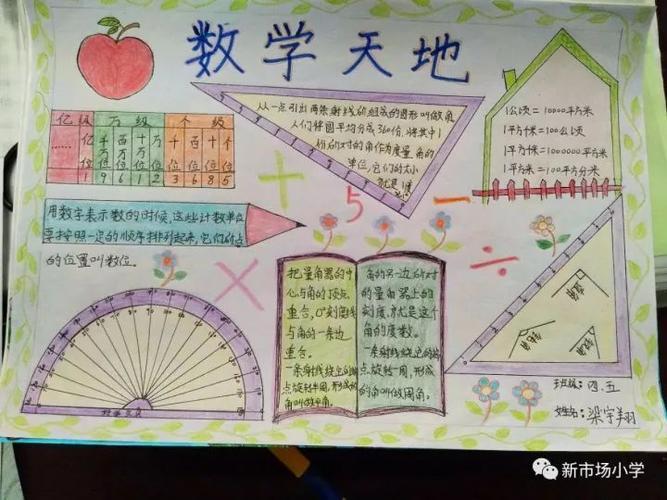 数学天地
亿级 万级 个级
…… 亿位 千万位 百万位 十万位 万位 千位 百位 十位 个位
1 9 6 1 2 3 6 8 5
用数字表示数的时候,这些计数单位
要按照一定的顺序排列起来,它们所占
的位置叫数位。
从一点引出两条射线所组成的图形叫做角
人们将圆平均分成360份,将其中1
份所对的角作为度量角的
单位,它们的大小
就是1度
1公顷=10000平方米
1平方千米=100公顷
1平方千米=1000000平方米
1平方米=100平方分米
+ 5 - × ÷
把量角器的中
心与角的顶点
重合,0°刻度线
与角的一条边
重合。
一条射线绕它的端
点旋转半周,形成的
角叫做平角。
角的另一边所对
的量角器上的
刻度,就是这个
角的度数。
一条射线绕它的端
点旋转一周,形成
的角叫做周角。
直角
锐角
钝角
班级:四.五
姓名:梁宇翔
新市场小学